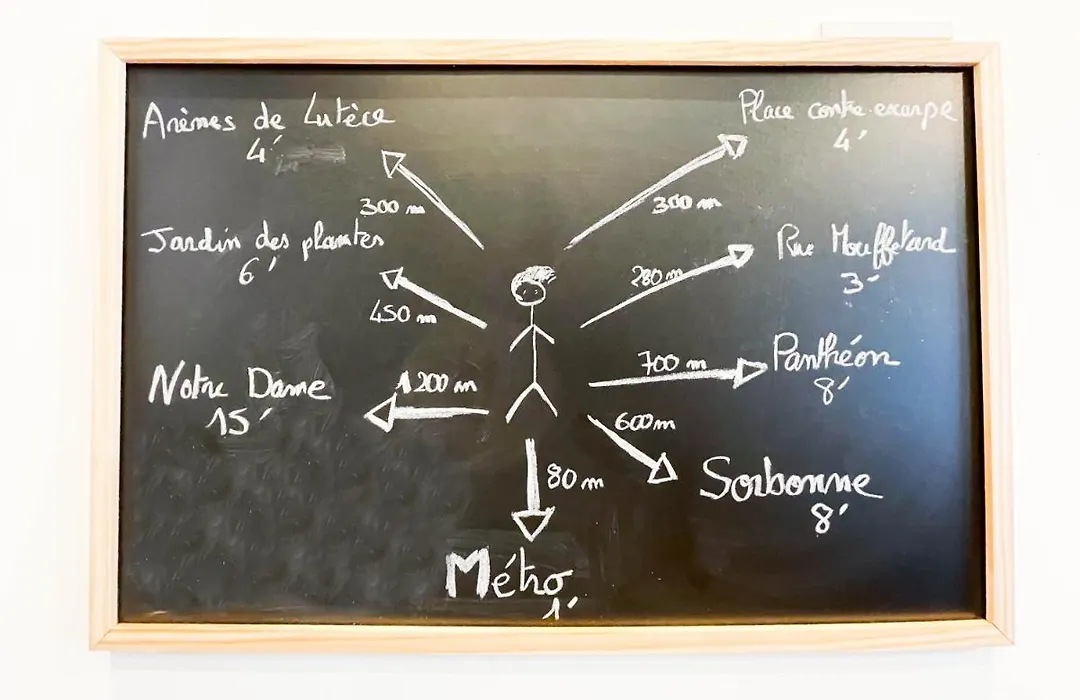 Arènes de Lutèce
4'
300 m
Place contre-exarpe
4'
300 m
Jardin des plantes
6'
450 m
Rue Mouffetard
3'
280 m
Notre Dame
15'
1200 m
Panthéon
8'
700 m
Sorbonne
8'
600 m
Métro
1'
80 m